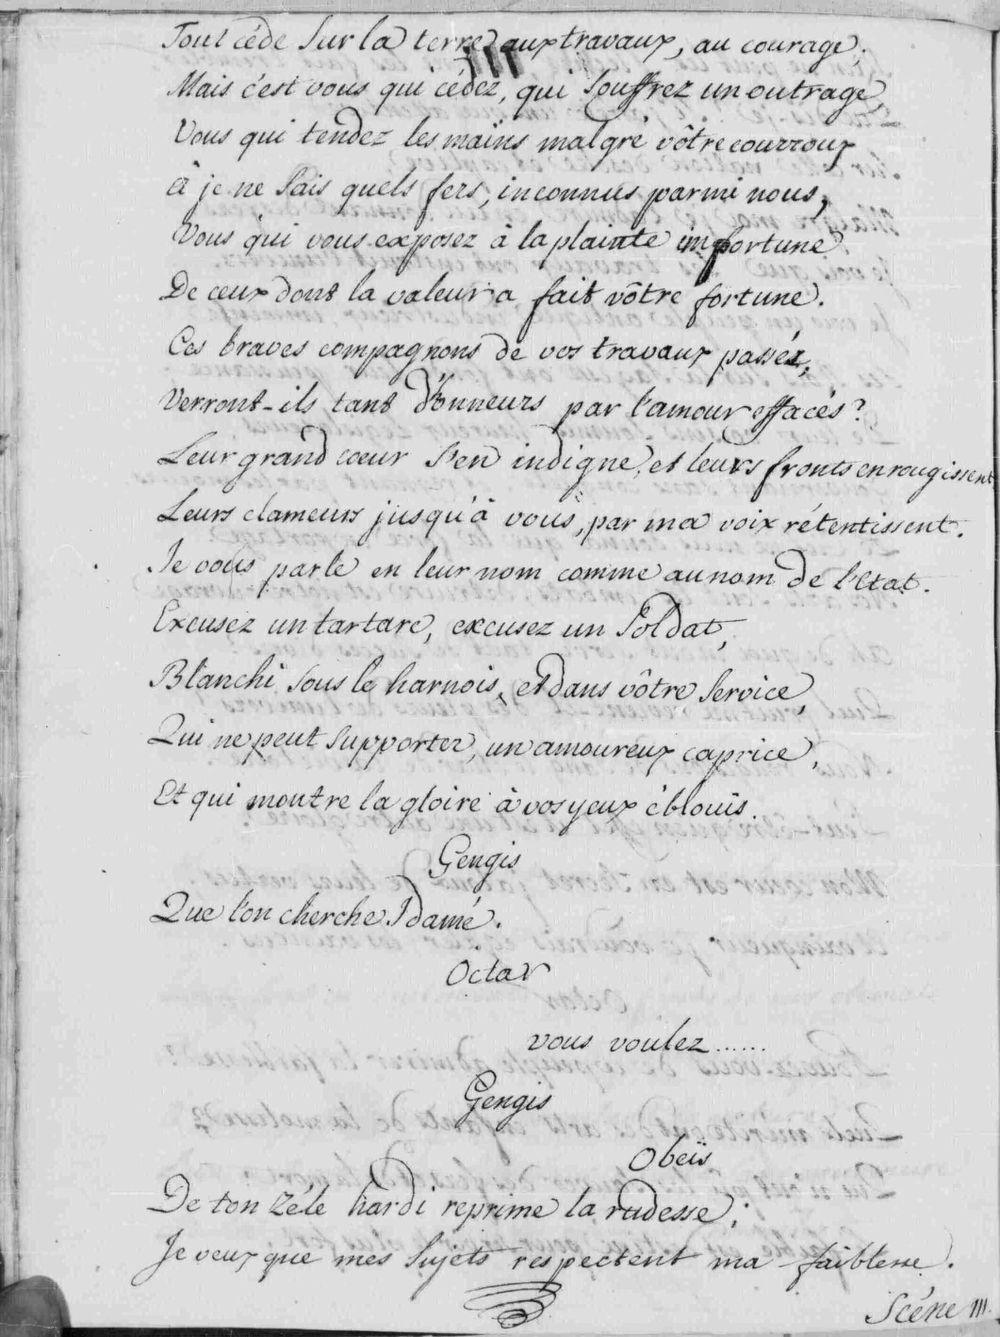 Tout cède sur la terre aux travaux, au courage.
Mais c'est vous qui cédez, qui souffrez un outrage
Vous qui tendez les mains malgré vôtre courroux
à je ne sais quels fers, inconnus parmi nous,
Vous qui vous exposez à la plainte importune
De ceux dont la valeur a fait vôtre fortune.
Ces braves compagnons de vos travaux passés,
Verront-ils tant d'honneurs par l'amour effacés?
Leur grand cœur s'en indigne, et leurs fronts en rougissent
Leurs clameurs jusqu'à vous, par ma voix rétentissent.
Je vous parle en leur nom comme au nom de l'Etat.
Excusez un tartare, excusez un Soldat,
Blanchi sous le harnois, et dans vôtre service,
Qui ne peut supporter, un amoureux caprice,
Et qui montre la gloire à vos yeux éblouis.
Gengis
Que l'on cherche Idamé.
Octar
vous voulez......
Gengis
Obeïs
De ton zéle hardi reprime la rudesse;
Je veux que mes sujets respectent ma faiblesse.
Scéne III.